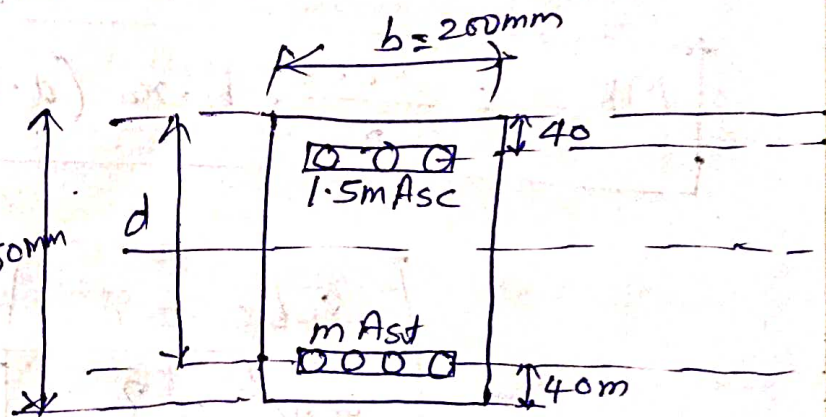 b = 200mm
40
1.5mAsc
d
50mm
m Ast
40m